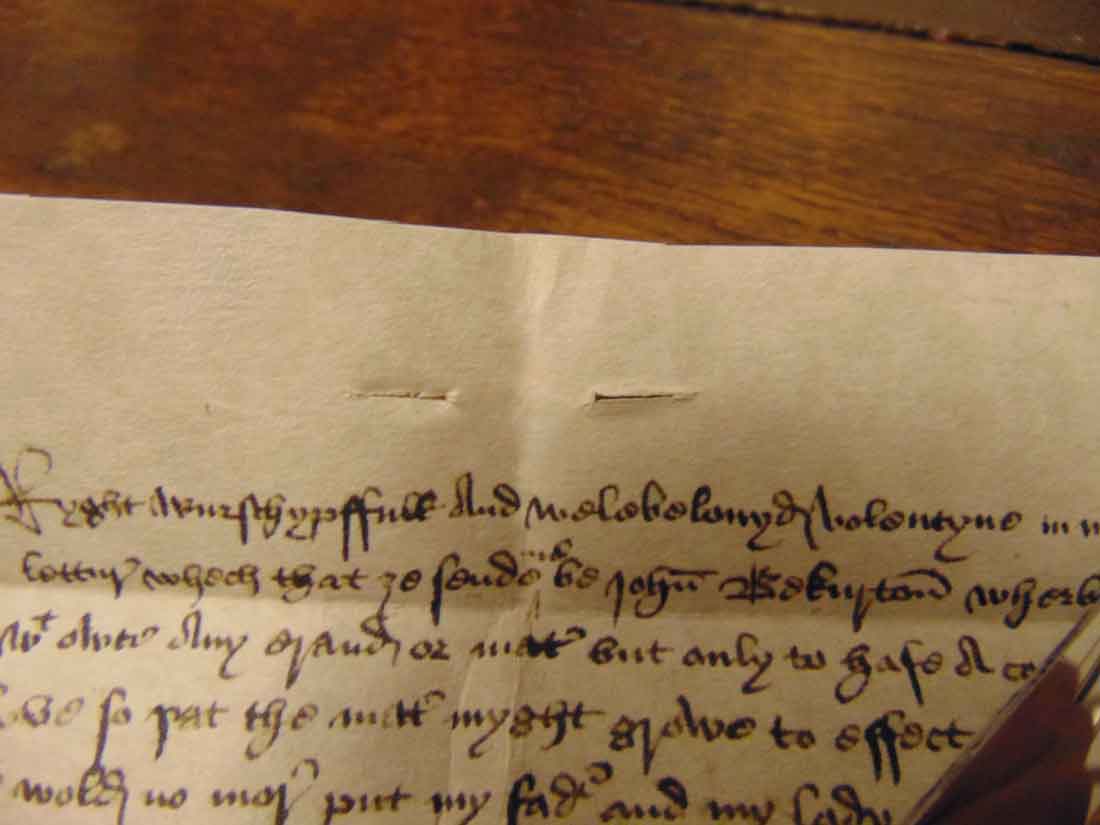 Ryght wurschypffull And welebelouyd volentyne in m
lettur whech that ȝe sende me be john Bekurton wherb
wt owte Any grandr or mater but only to hafe A co
love so þat the mater myght growe to effect
wold no mor put my fader and my lady